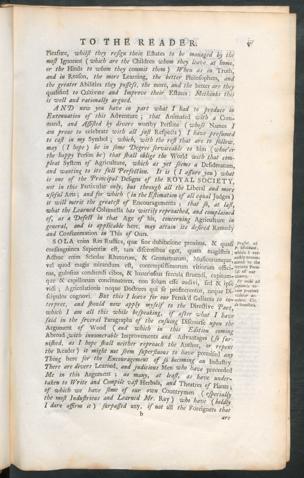 TO THE READER.
Pleasure, whilst they resign their Estates to be managed by the
most Ignorant (which are the Children whom they leave at home,
or the Hinds to whom they commit them) When as in Truth,
and in Reason, the more Learning, the better Philosophers, and
the greater Abilities they possess, the more, and the better are they
qualified to Cultivate and Improve their Estates: Methinks this
is well and rationally argued.
AND now you have in part what I had to produce in
Extenuation of this Adventure; that Animated with a Com-
mand, and Assisted by divers worthy Persons (whose Names I
am prone to celebrate with all just Respects) I have presumed
to cast in my Symbol; which, with the rest that are to follow,
may (I hope) be in some Degree serviceable to him (who'er
the happy Person be) that shall oblige the World with that com-
pleat System of Agriculture, which as yet seems a Desideratum,
and wanting to its full Perfection. It is (I assure you) what
is one of the Principal Designs of the ROYAL SOCIETY,
not in this Particular only, but through all the Liberal and more
useful Arts; and for which (in the Estimation of all equal Judges)
it will merit the greatest of Encouragements; that so, at last,
what the Learned Columella has wittily reproached, and complained
of, as a Defect in that Age of his, concerning Agriculture in
general, and is applicable here, may attain its desired Remedy
and Consummation in This of Ours.
SOLA enim Res Rustica, quæ sine dubitatione proxima, & quasi
consanguinea Sapientiæ est, tam discentibus eget, quam magistris:
Adhuc enim Scholas Rhetorum, & Geometrarum, Musicorumque
vel quod magis mirandum est, contemptissimorum vitiorum offici-
nas, gulosius condiendi cibos, & luxuriosius fercula struendi, capitum-
que & capillorum concinnatores, non solum esse audivi, sed & ipse
vidi; Agricolationis neque Doctores qui se profiterentur, neque Di-
scipulos cognovi. But this I leave for our Peruk'd Gallants to in-
terpret, and should now apply myself to the Directive Part,
which I am all this while bespeaking, if after what I have
said in the several Paragraphs of the ensuing Discourse upon the
Argument of Wood (and which in this Edition coming
Abroad with innumerable Improvements and Advantages (so fur-
nished, as I hope shall neither reproach the Author, or repent
the Reader) it might not seem superfluous to have preceded any
Thing here for the Encouragement of so becoming an Industry
There are divers Learned, and judicious Men who have preceded
Me in this Argument; as many, at least, as have under-
taken to Write and Compile vast Herbals, and Theatres of Plants;
of which we have some of our own Countrymen (especially
the most Industrious and Learned Mr. Ray) who have (boldly
I dare affirm it) surpassed any, if not all the Foreigners that
b
are